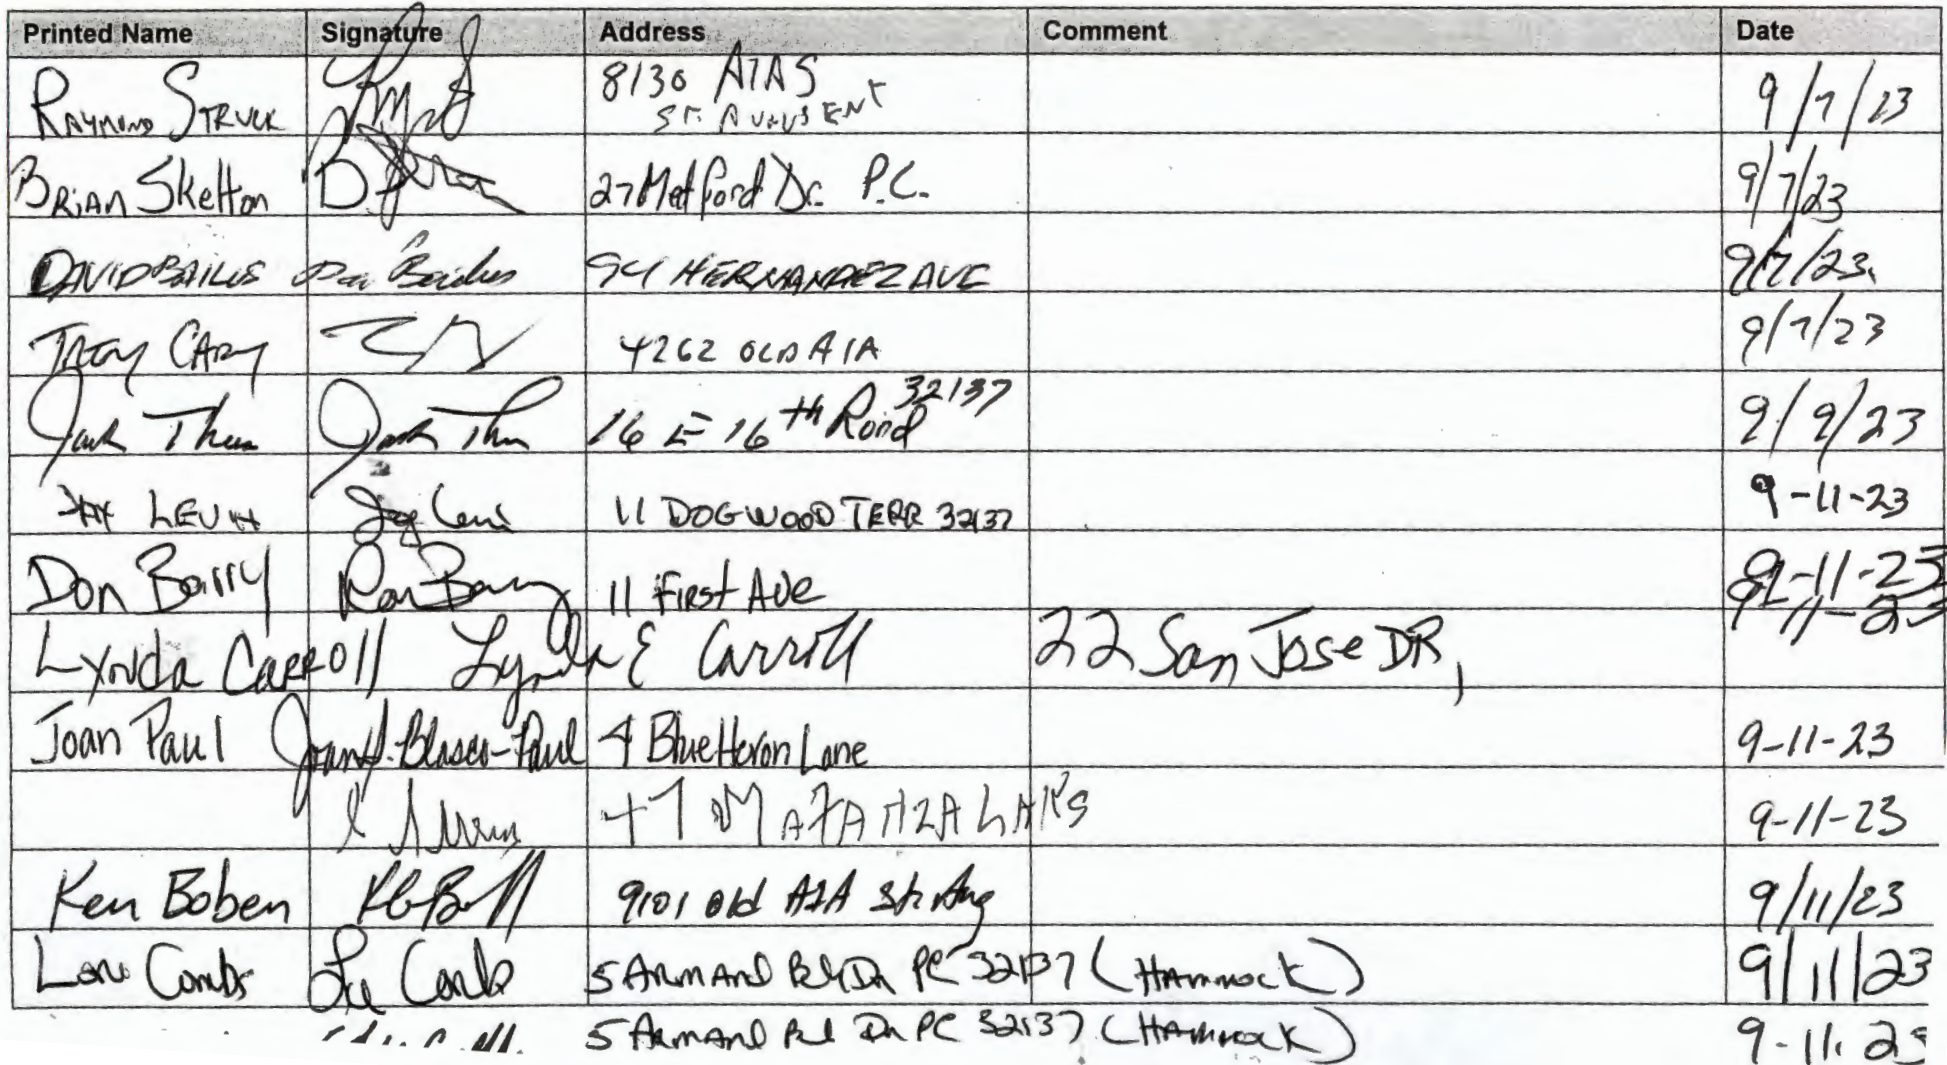 Printed Name Signature Address Comment Date
RAYMOND STRUCK 8130 A1A S 9/7/23
ST. AUGUST
BRIAN Skelton 27 Medford Dr. P.C. 9/7/23
DAVID BAILUS 94 HERNANDEZ AVE 9/7/23
TROY CARY 4262 OLD A1A 9/7/23
Jack 16 E 16th Road 32137 9/9/23
11 DOGWOOD TERR 32137 9-11-23
Don Barry 11 First Ave 9-11-23
Lynda CARROLL Lynda E Carroll 22 San Jose DR, 9-11-23
Joan Paul Joan Blasco-Paul 4 Blue Heron Lane 9-11-23
9-11-23
Ken Boben 9101 old A1A St. Aug 9/11/23
Combs 5 Armand Dr PC 32137 (HAmmock) 9/11/23
5 Armand Dr PC 32137 (HAmmock) 9-11-23